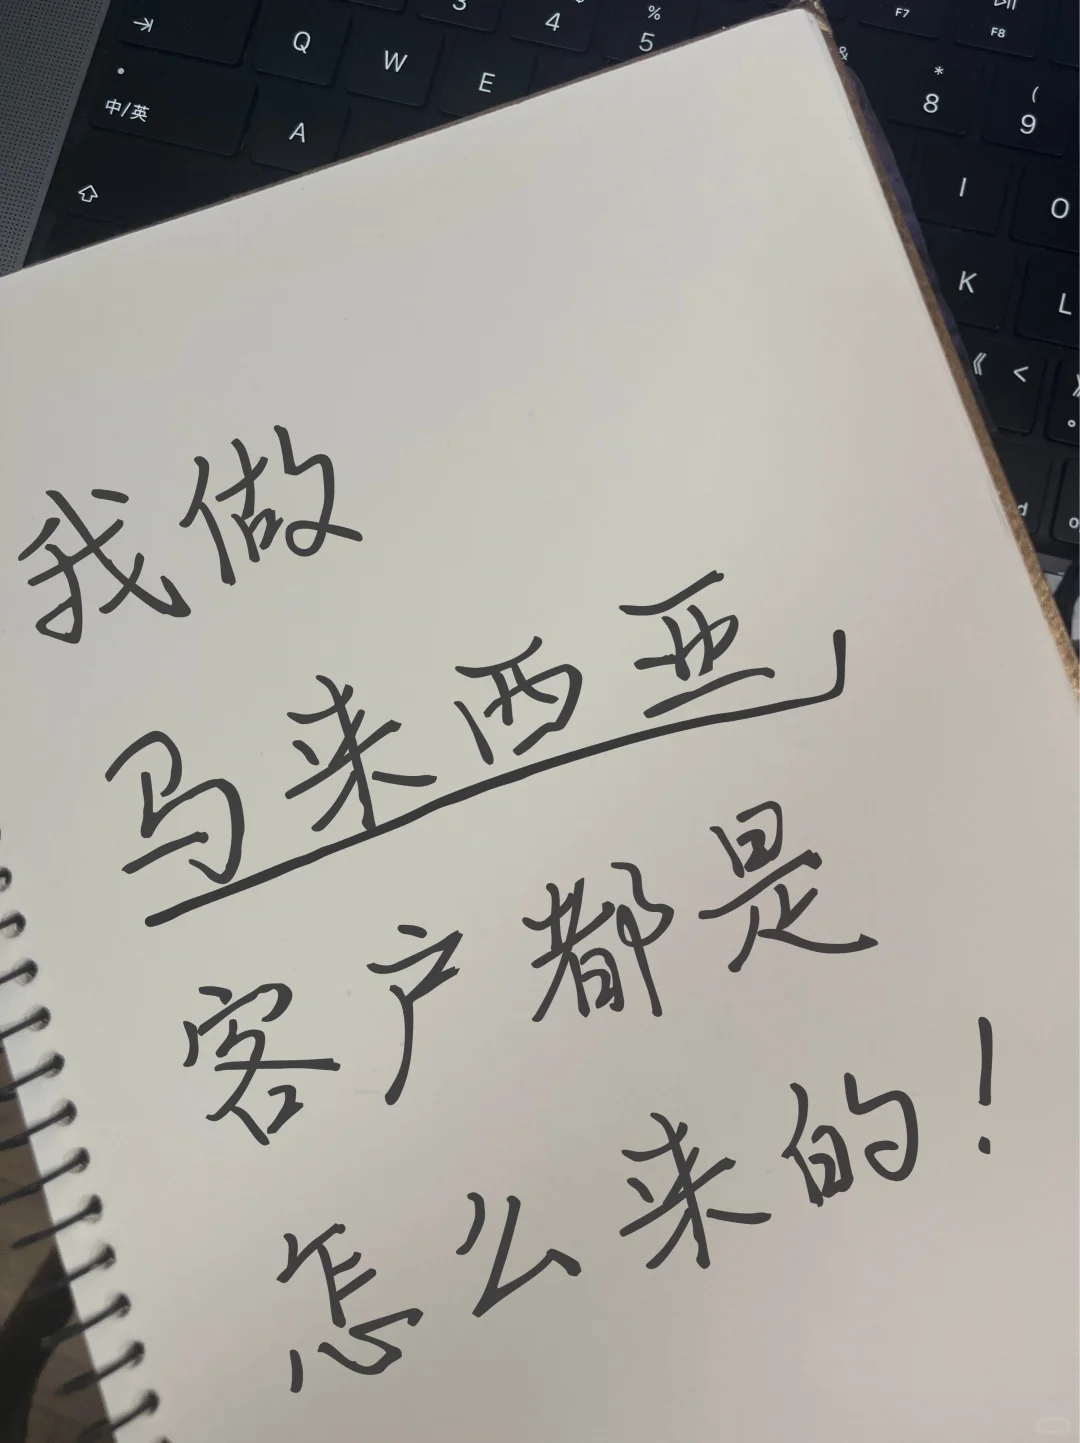 Q W E
3 4 % 5
F7 F8
中/英
A
&
* 8
( 9
I O
K L
《 <
我做
马来西亚
客户都是
怎么来的!